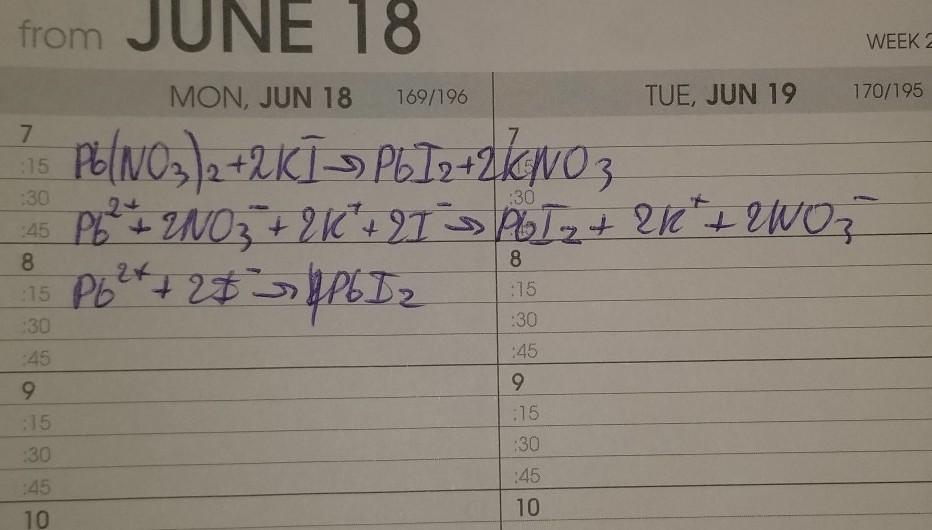 from JUNE 18
WEEK 2
MON, JUN 18 169/196
TUE, JUN 19 170/195
7 7
:15 Pb(NO₃)₂+2KI→PbI₂+2KNO₃ :15
:30 :30
:45 Pb²⁺+2NO₃⁻+2K⁺+2I⁻→PbI₂+2K⁺+2NO₃⁻
8 8
:15 Pb²⁺+2I⁻→PbI₂ :15
:30 :30
:45 :45
9 9
:15 :15
:30 :30
:45 :45
10 10